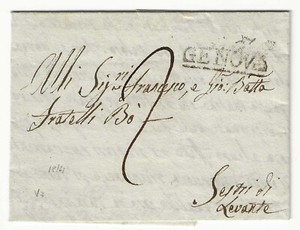 GENOVA
Alli Sig.ri Francesco, e Gio: Batta
Fratelli Bò
2
Sestri di
Levante